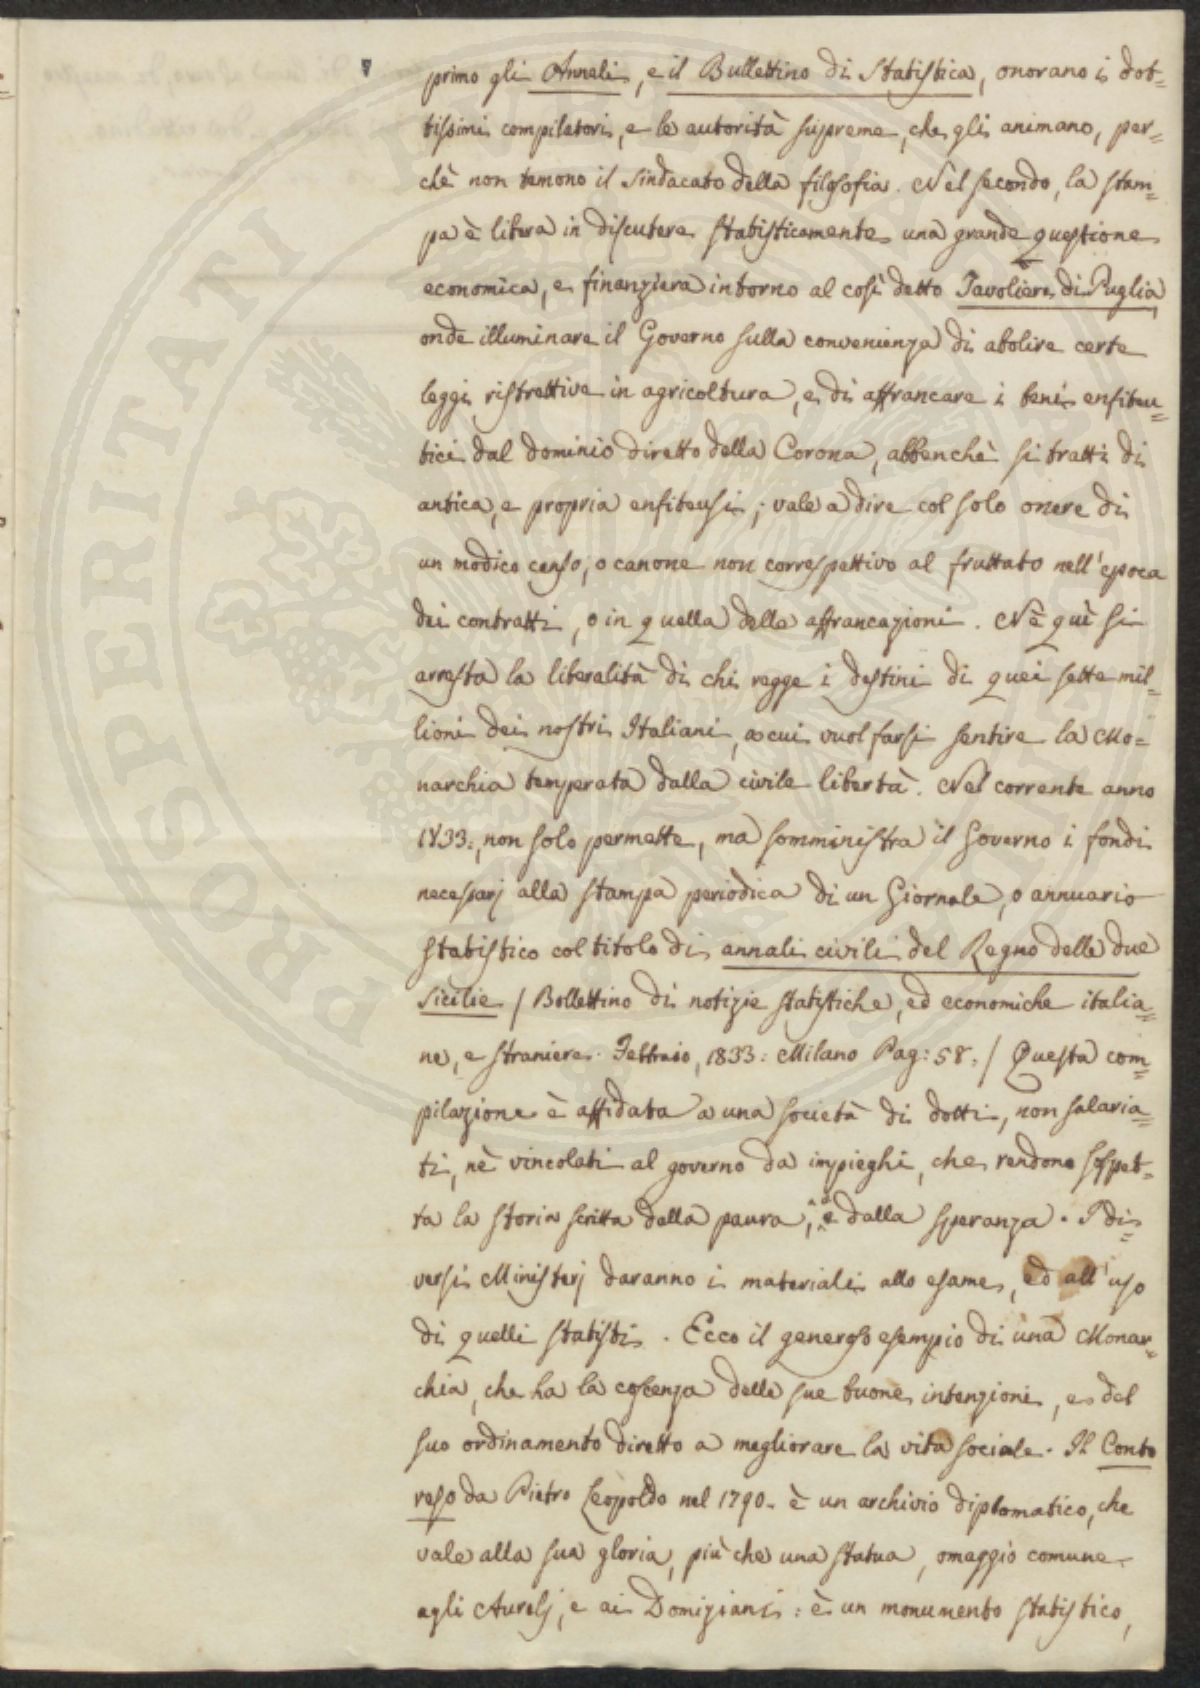 primo gli Annali, e il Bullettino di Statistica, onorano i dot=
tissimi compilatori, e le autorità supreme, che gli animano, per=
chè non temono il sindacato della filosofia. Nel secondo, la stam=
pa è libera in discutere statisticamente una grande questione
economica, e finanziera intorno al così detto Tavoliere di Puglia,
onde illuminare il Governo sulla convenienza di abolire certe
leggi ristrettive in agricoltura, e di affrancare i beni enfiteu=
tici dal dominio diretto della Corona, abbenchè si tratti di
antica, e propria enfiteusi; vale a dire col solo onere di
un modico censo, o canone non correspettivo al fruttato nell'epoca
dei contratti, o in quella delle affrancazioni. Nè quì si
arresta la liberalità di chi regge i destini di quei sette mil=
lioni dei nostri Italiani, a cui vuol farsi sentire la Mo=
narchia temperata dalla civile libertà. Nel corrente anno
1833:, non solo permette, ma somministra il Governo i fondi
necessarj alla stampa periodica di un Giornale, o annuario
statistico col titolo di annali civili del Regno delle due
Sicilie / Bollettino di notizie statistiche, ed economiche italia=
ne, e straniere. Febbraio, 1833: Milano Pag: 58. / Questa com=
pilazione è affidata a una società di dotti, non salaria=
ti, nè vincolati al governo da impieghi, che rendono sospet=
ta la storia scritta dalla paura, e dalla speranza. I di=
versi Ministerj daranno i materiali allo esame, ed all'uso
di quelli statisti. Ecco il generoso esempio di una Monar=
chia, che ha la coscenza delle sue buone intenzioni, e del
suo ordinamento diretto a megliorare la vita sociale. Il Conto
reso da Pietro Leopoldo nel 1790. è un archivio diplomatico, che
vale alla sua gloria, più che una statua, omaggio comune
agli Aurelj, e ai Domiziani: è un monumento statistico,
PROSPERITATI